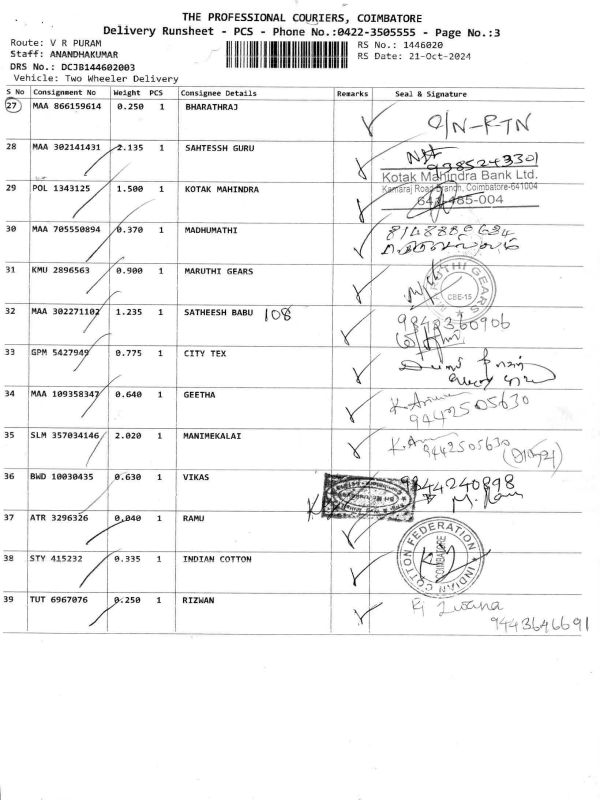 THE PROFESSIONAL COURIERS, COIMBATORE
Delivery Runsheet - PCS - Phone No.:0422-3505555 - Page No.:3
Route: V R PURAM
Staff: ANANDHAKUMAR
DRS No.: DCJB144602003
Vehicle: Two Wheeler Delivery
RS No.: 1446020
RS Date: 21-Oct-2024
S No Consignment No Weight PCS Consignee Details Remarks Seal & Signature
27 MAA 866159614 0.250 1 BHARATHRAJ O/N-RTN
28 MAA 302141431 2.135 1 SAHTESSH GURU
Kotak Mahindra Bank Ltd.
Kamaraj Road Branch, Coimbatore-641004
29 POL 1343125 1.500 1 KOTAK MAHINDRA
641-485-004
30 MAA 705550894 0.370 1 MADHUMATHI
31 KMU 2896563 0.900 1 MARUTHI GEARS
MARUTHI GEARS
CBE-15
32 MAA 302271102 1.235 1 SATHEESH BABU 108
9843360906
33 GPM 5427949 0.775 1 CITY TEX
34 MAA 109358347 0.640 1 GEETHA
9442505630
35 SLM 357034146 2.020 1 MANIMEKALAI
9442505630
36 BWD 10030435 0.630 1 VIKAS
9844240898
37 ATR 3296326 0.040 1 RAMU
38 STY 415232 0.335 1 INDIAN COTTON
INDIAN COTTON FEDERATION
COIMBATORE
39 TUT 6967076 0.250 1 RIZWAN
9443646691